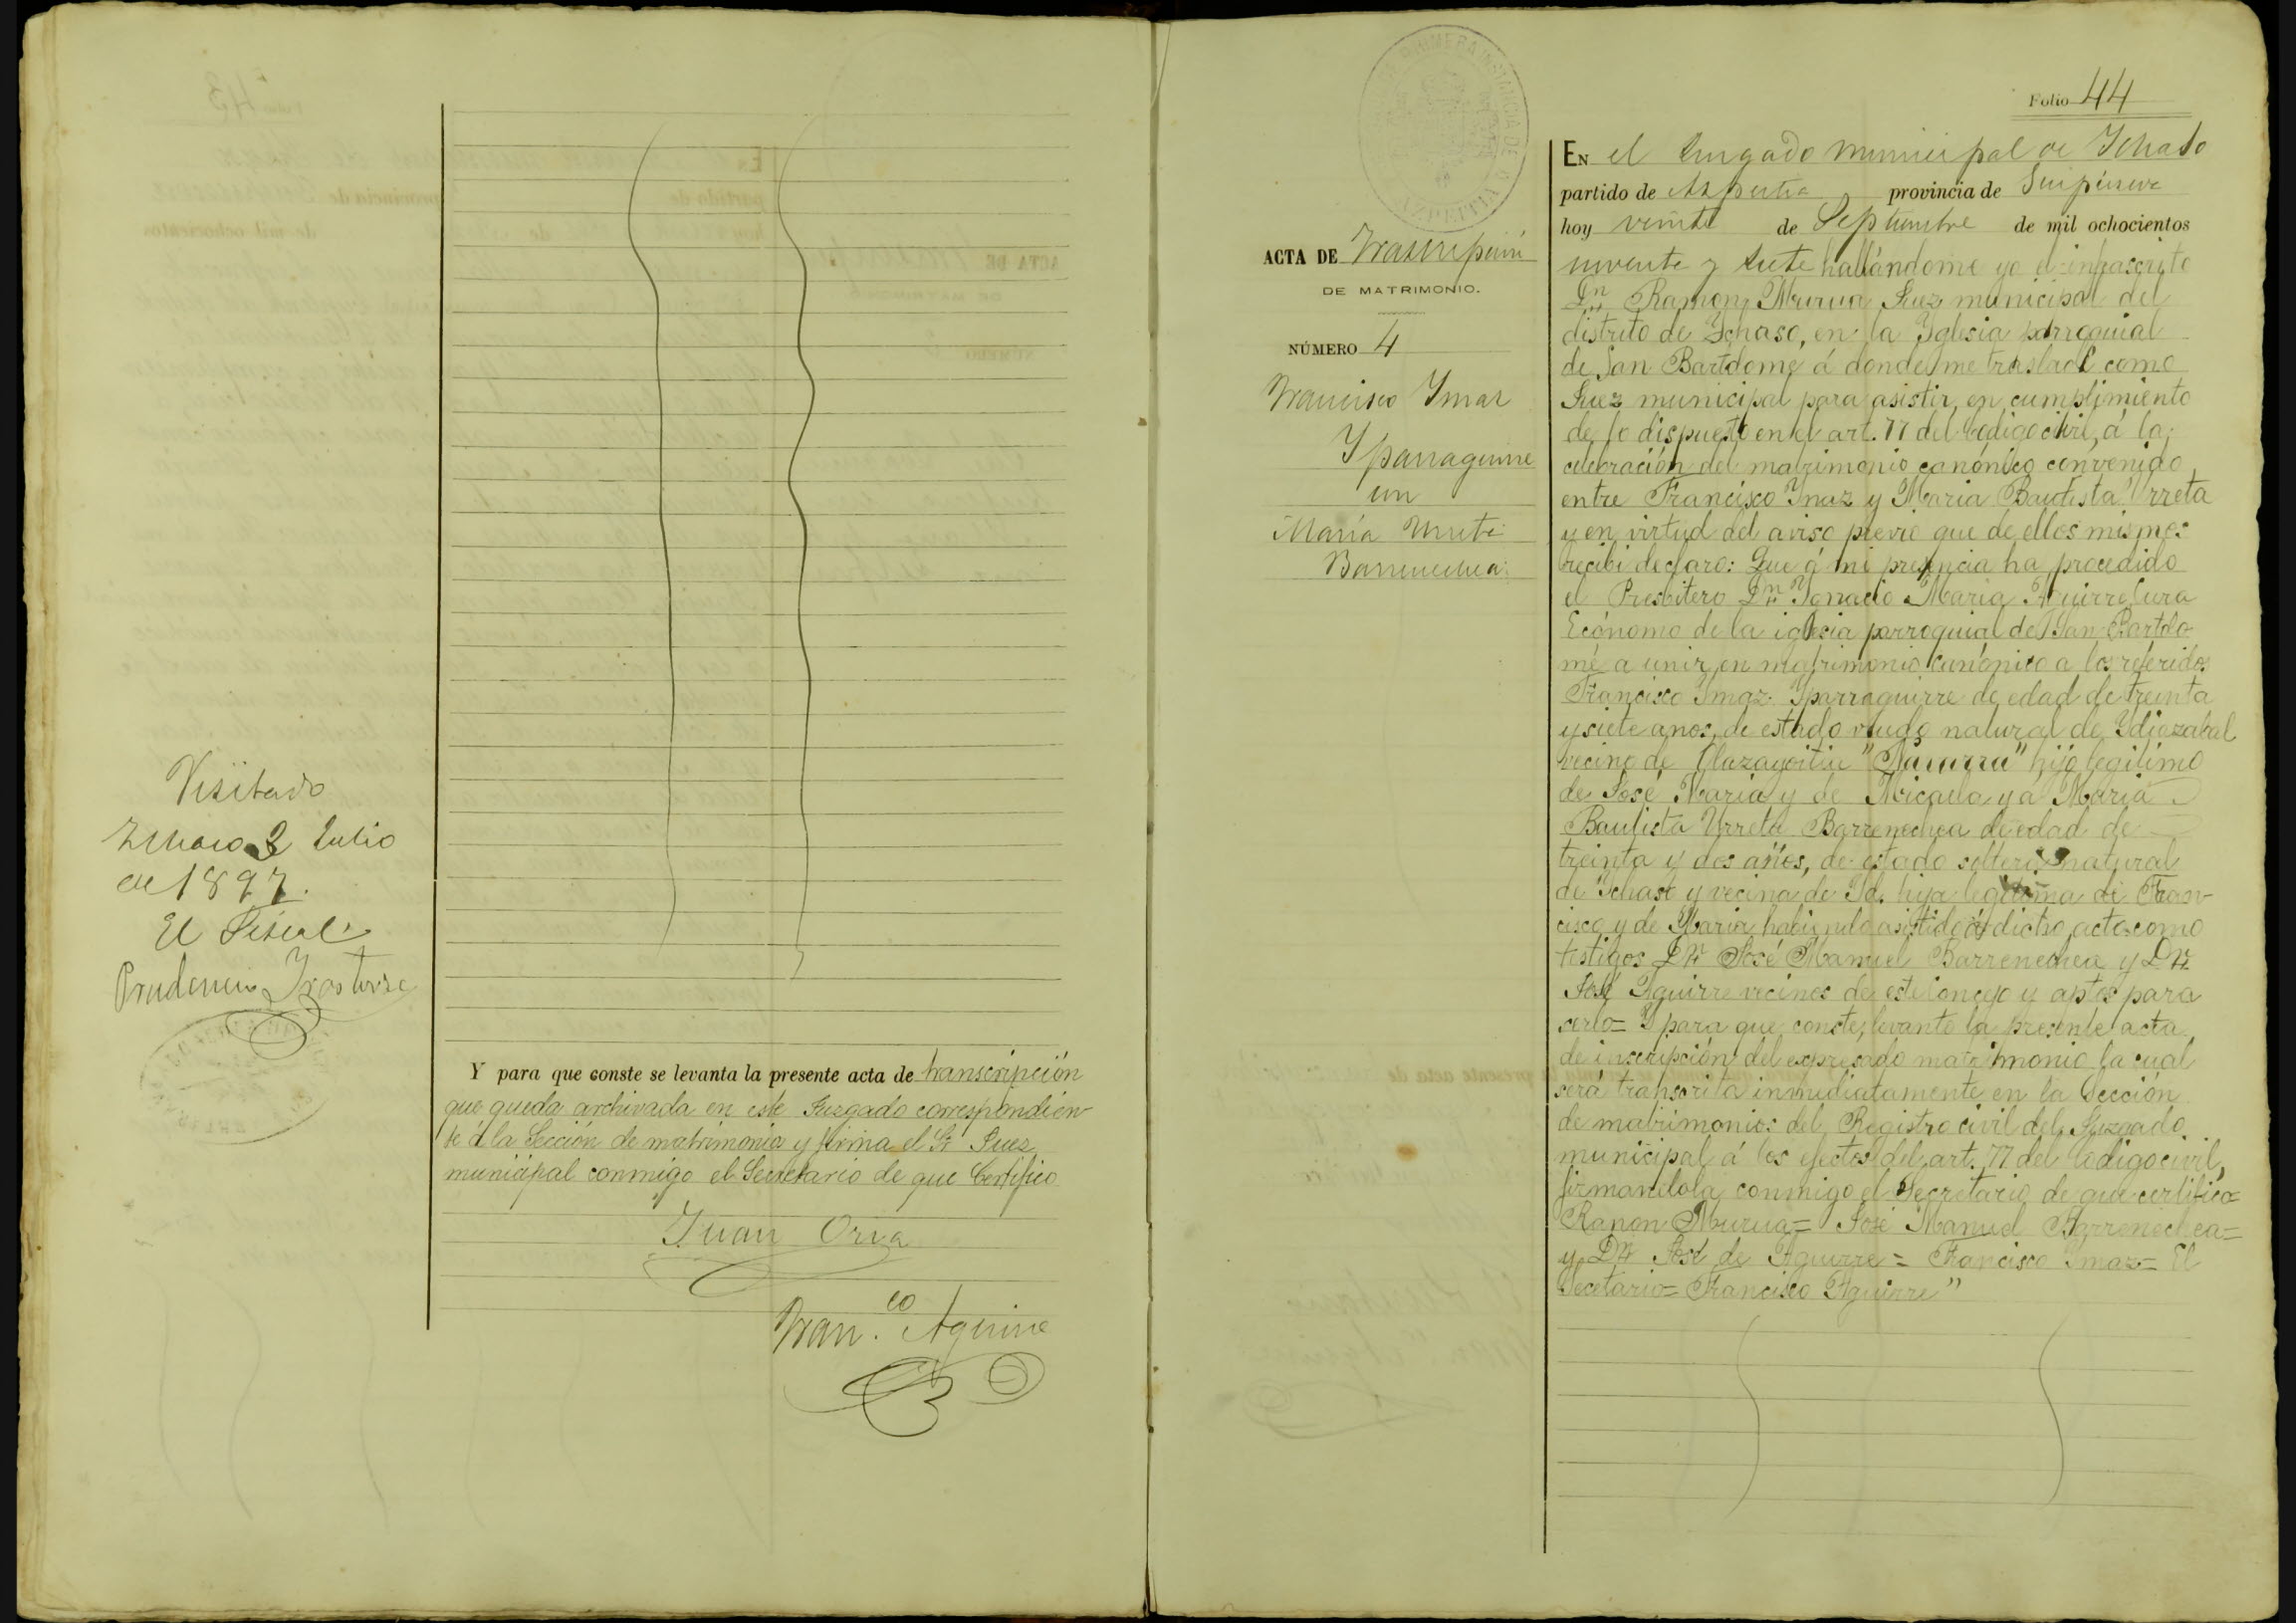 Visitado
Ichaso 2 Julio
de 1897.
El Fiscal
Prudencio
Y para que conste se levanta la presente acta de transcripción
que queda archivada en este Juzgado correspondien-
te a la Sección de matrimonio y firma el Sr Juez
municipal conmigo el Secretario de que Certifico
Juan Oria
Fran.co Aguirre
PRIMERA INSTANCIA DE
AZPEITIA
ACTA DE Transcripción
DE MATRIMONIO.
NÚMERO 4
Francisco Imaz
Yparraguirre
con
María Urreta
Barrenechea
Folio 44
EN el Juzgado municipal de Ichaso
partido de Azpeitia provincia de Guipúzcoa
hoy veinte de Septiembre de mil ochocientos
noventa y siete hallándome yo el infrascrito
Dn Ramon Murua Juez municipal del
distrito de Ychaso, en la Yglesia parroquial
de San Bartolome á donde me trasladé como
Juez municipal para asistir, en cumplimiento
de lo dispuesto en el art. 77 del Codigo civil, á la
celebración del matrimonio canónico convenido
entre Francisco Ymaz y Maria Bautista Urreta
y en virtud del aviso previo que de ellos mismos
recibi declaro: Que á mi presencia ha procedido
el Presbitero Dn Ygnacio Maria Aguirre Cura
Ecónomo de la iglesia parroquial de San Bartolo-
mé a unir en matrimonio canónico a los referidos
Francisco Ymaz Yparraguirre de edad de treinta
y siete anos, de estado viudo natural de Ydiazabal
vecino de Olazagoitia "Navarra" hijo legitimo
de José Maria y de Micaela y a Maria
Bautista Urreta Barrenechea de edad de
treinta y dos años, de estado soltera natural
de Ychaso y vecina de Id. hija legitima de Fran-
cisco y de Maria habiendo asistido á dicho acto como
testigos Dn José Manuel Barrenechea y Dn
José Aguirre vecinos de este Concejo y aptos para
serlo= Y para que conste, levanto la presente acta
de inscripción del expresado matrimonio la cual
será transcrita inmediatamente en la Sección
de matrimonios del Registro civil del Juzgado
municipal á los efectos del art. 77 del Codigo civil,
firmandola conmigo el Secretario de que certifico=
Ramon Murua= José Manuel Barrenechea=
y Dn José de Aguirre= Francisco Ymaz= El
Secetario= Francisco Aguirre"